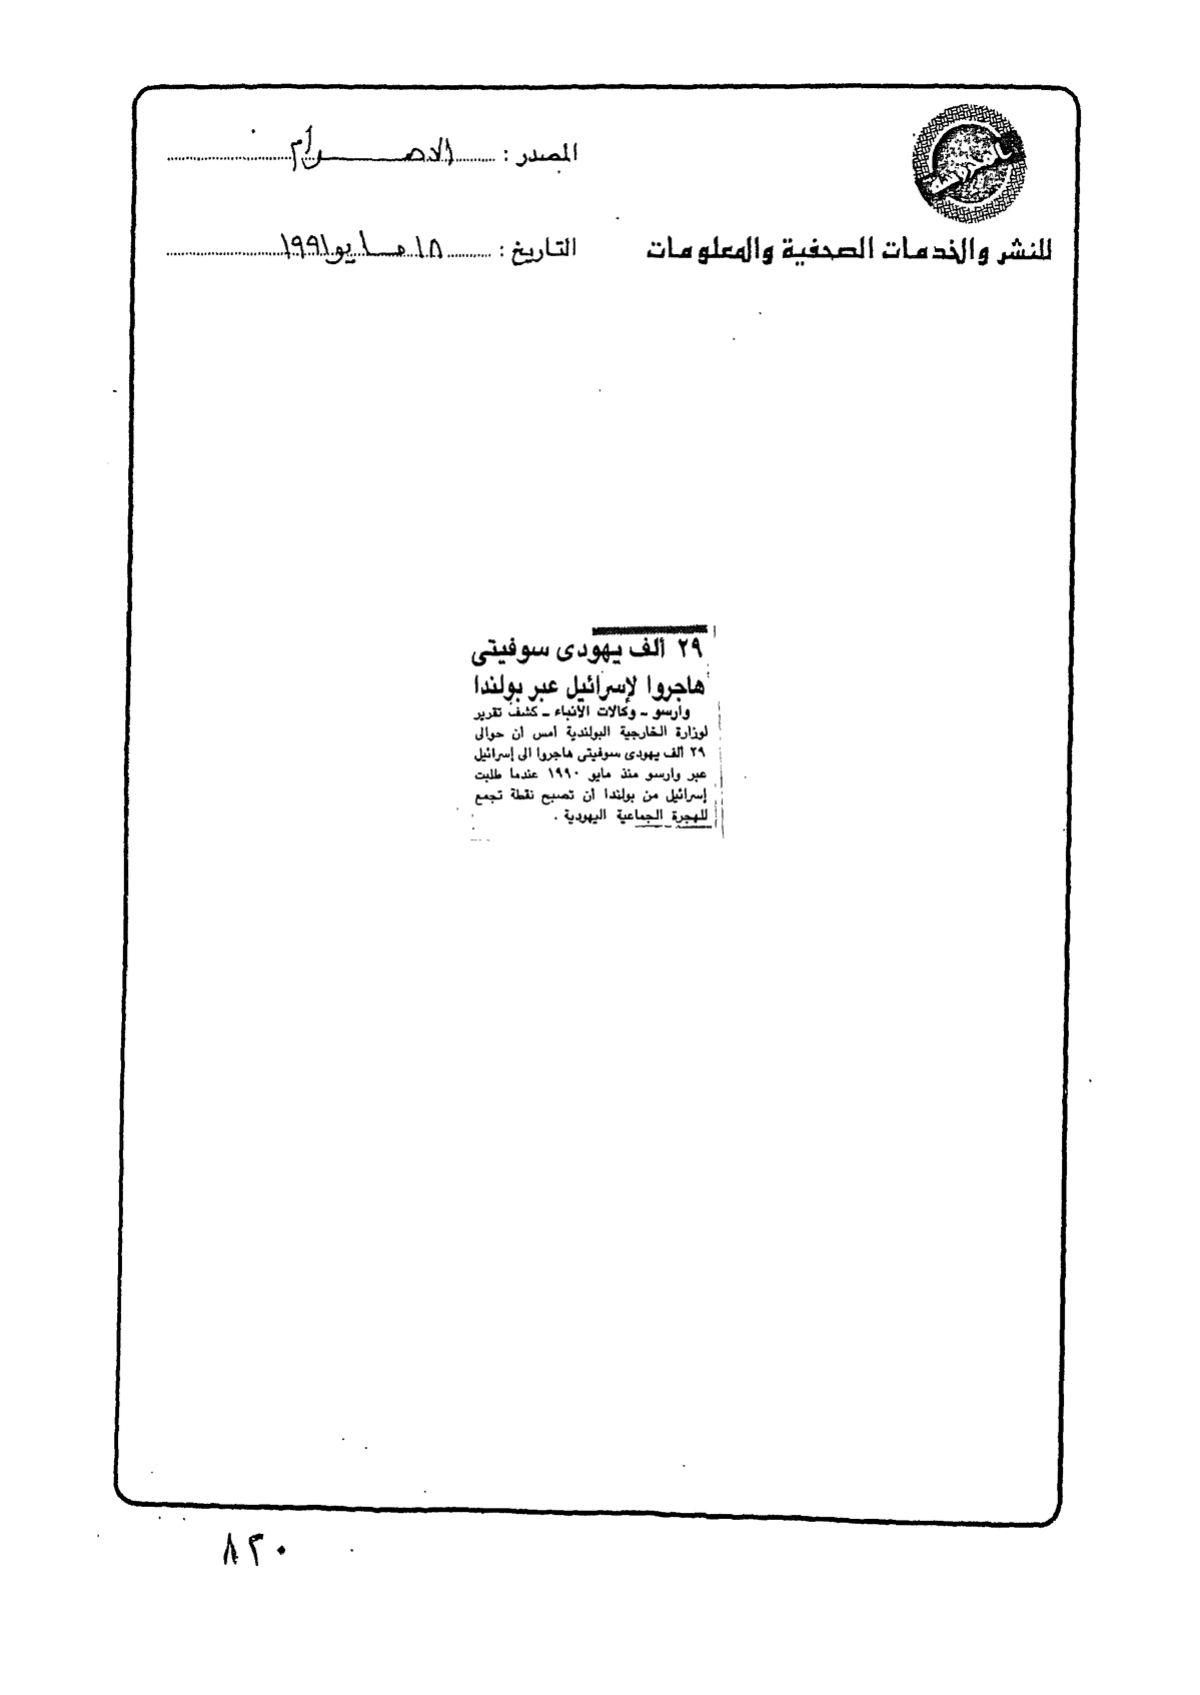 المصدر : الاهرام
للنشر والخدمات الصحفية والمعلومات
التاريخ : ١٨ مايو ١٩٩١
٢٩ ألف يهودى سوفيتى
هاجروا لإسرائيل عبر بولندا
وارسو - وكالات الأنباء - كشف تقرير
لوزارة الخارجية البولندية أمس أن حوالى
٢٩ ألف يهودى سوفيتى هاجروا الى إسرائيل
عبر وارسو منذ مايو ١٩٩٠ عندما طلبت
إسرائيل من بولندا أن تصبح نقطة تجمع
للهجرة الجماعية اليهودية .
٨٢٠